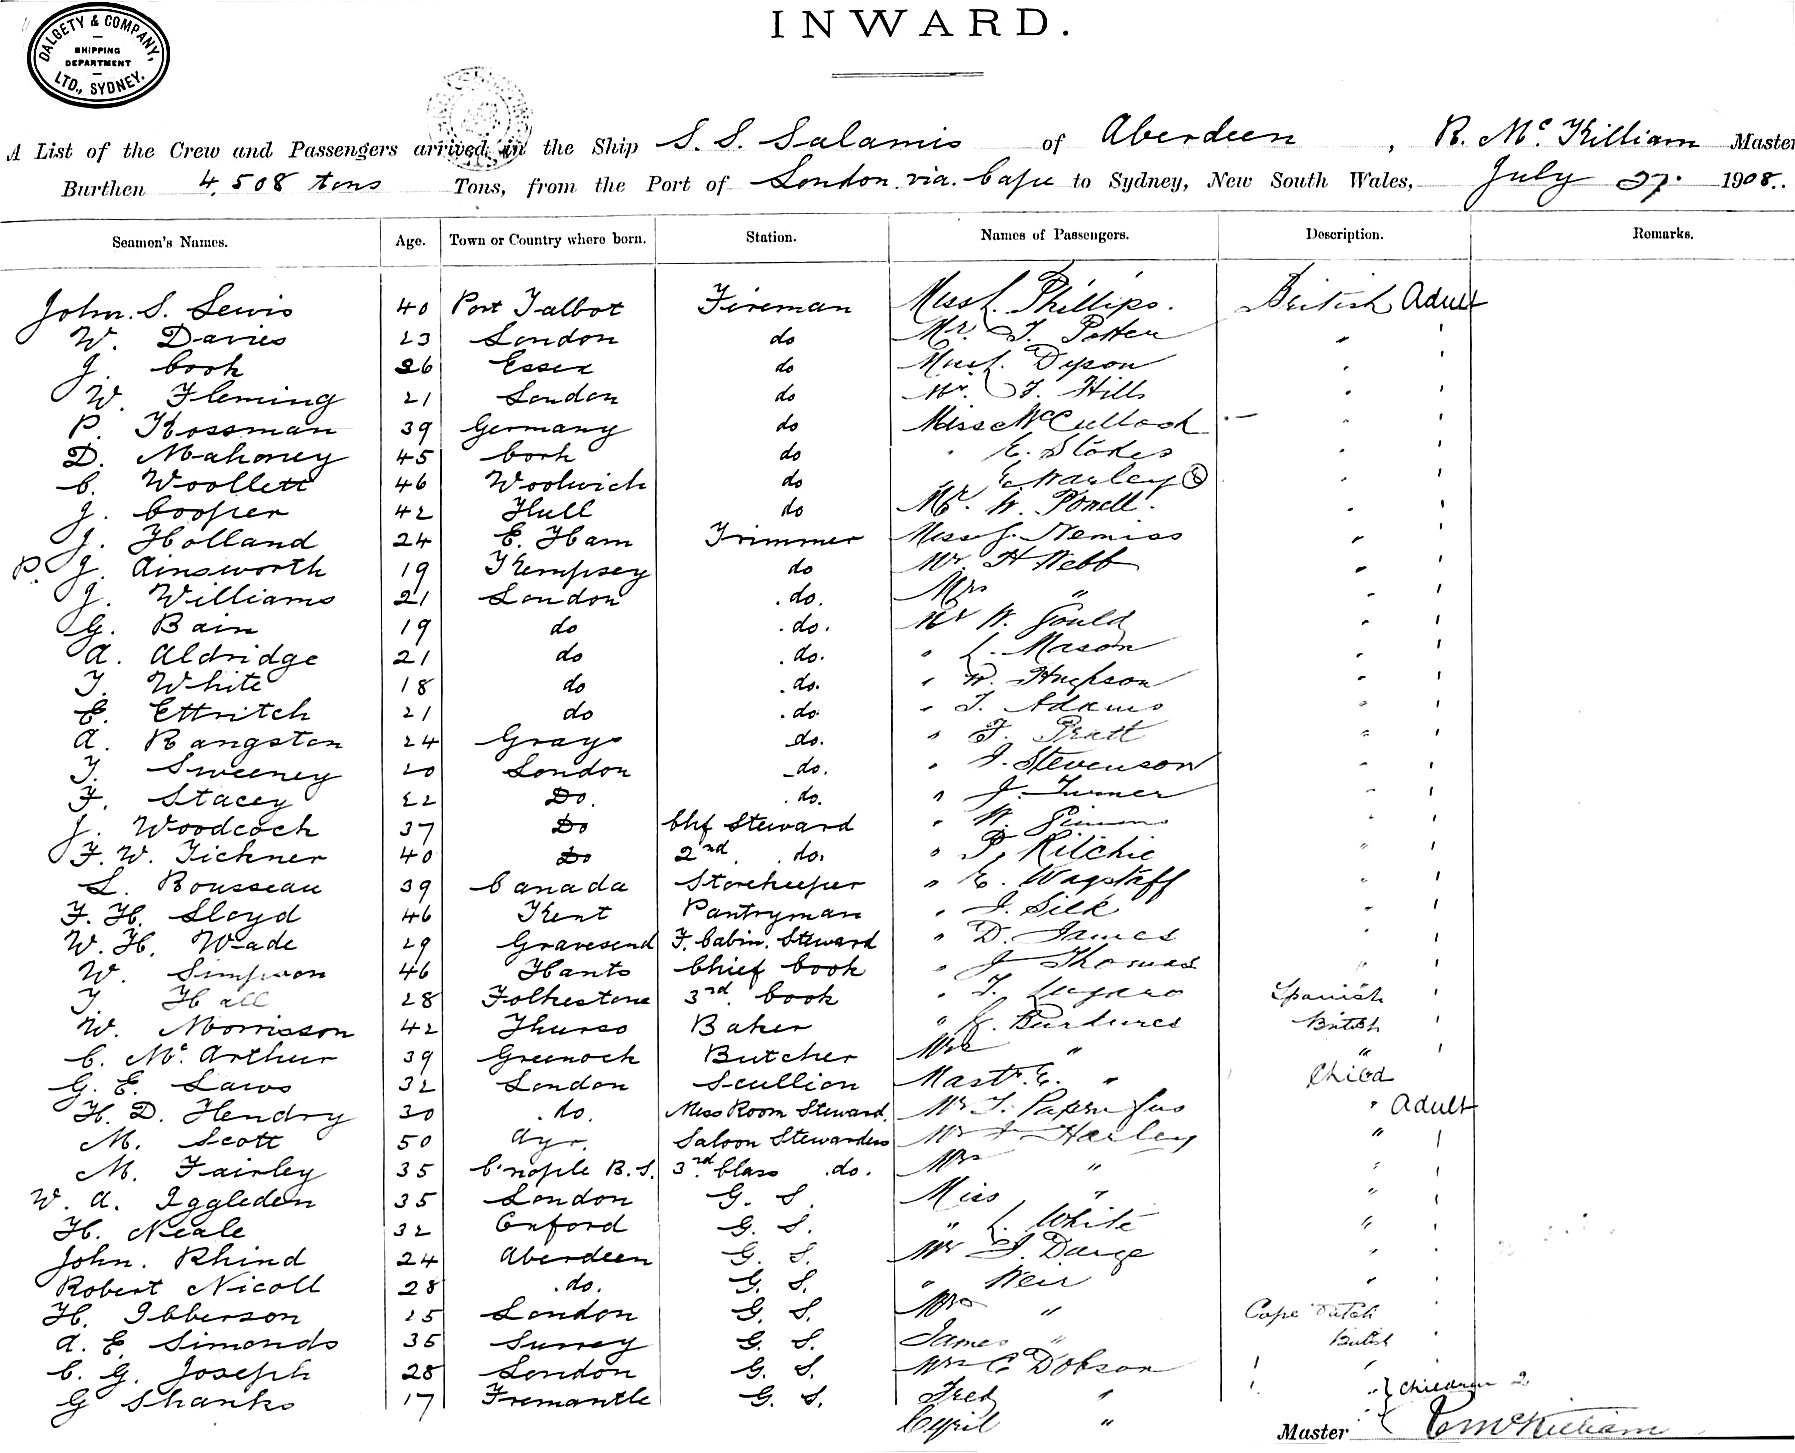 DALGETY & COMPANY, LTD., SYDNEY. SHIPPING DEPARTMENT
INWARD.
A List of the Crew and Passengers arrived in the Ship S. S. Salamis of Aberdeen, R. Mc. Killiam Master
Burthen 4,508 tons Tons, from the Port of London via. Cape to Sydney, New South Wales, July 27. 1908.
Seamen's Names. Age. Town or Country where born. Station. Names of Passengers. Description. Remarks.
John. S. Lewis 40 Port Talbot Fireman Miss L. Phillips. British Adult
W. Davies 23 London do Mr. T. Potter " '
J. Cook 26 Essex do Miss L. Dyson " '
W. Fleming 21 London do Mr. F. Hills " '
P. Kossman 39 Germany do Miss McCulloch " '
D. Mahoney 45 Cork do " E. Stokes " '
C. Woollett 46 Woolwich do " E. Warley 8 " '
J. Cooper 42 Hull do Mr. W. Powell. " '
J. Holland 24 E. Ham Trimmer Miss J. Nemiss " '
P. J. Ainsworth 19 Kempsey do Mr. H Webb " '
J. Williams 21 London do. Mrs " " '
G. Bain 19 do do. Mr W. Gould " '
A. Aldridge 21 do do. " L. Mason " '
T. White 18 do do. " W. " '
E. Ettritch 21 do do. " T. Adams " '
A. Rangston 24 Grays do. " F. Pratt " '
T. Sweeney 20 London do. " J. Stevenson " '
F. Stacey 22 Do. do. " J. Turner " '
J. Woodcock 37 Do Chf Steward " W. " '
F. W. Tichner 40 Do 2nd. do. " P. Ritchie " '
L. Rousseau 39 Canada Storekeeper " E. Wagstaff " '
F. H. Lloyd 46 Kent Pantryman " J. Silk " '
W. H. Wade 29 Gravesend F. Cabin. Steward " D. James " '
W. Simpson 46 Hants Chief Cook " J Thomas " '
T. Hall 28 Folkestone 3rd. Cook " T. Spanish '
W. Morrisson 42 Thurso Baker " British '
C. Mc. Arthur 39 Greenock Butcher Mrs " " '
G. E. Laws 32 London Scullion Mastr. E. " Child
H. D. Hendry 30 do. Mess Room Steward. Mr " Adult
M. Scott 50 Ayr. Saloon Stewardess Mr J Harley " '
M. Fairley 35 C'nople B.S. 3rd Class do. Mrs " " '
W. A. Iggleden 35 London G. S. Miss " " '
H. Neale 32 Oxford G. S. " L. White " '
John. Rhind 24 Aberdeen G. S. Mr J. Darge " '
Robert Nicoll 28 do. G. S. " Weir " '
H. Ibberson 25 London G. S. Mrs " Cape Dutch '
A. E. Simonds 35 Surrey G. S. James " British '
C. G. Joseph 28 London G. S. Mrs C. Dobson ' " '
G Shanks 17 Fremantle G. S. Fred " ' " } Children 2
Cyril "
Master McKilliam